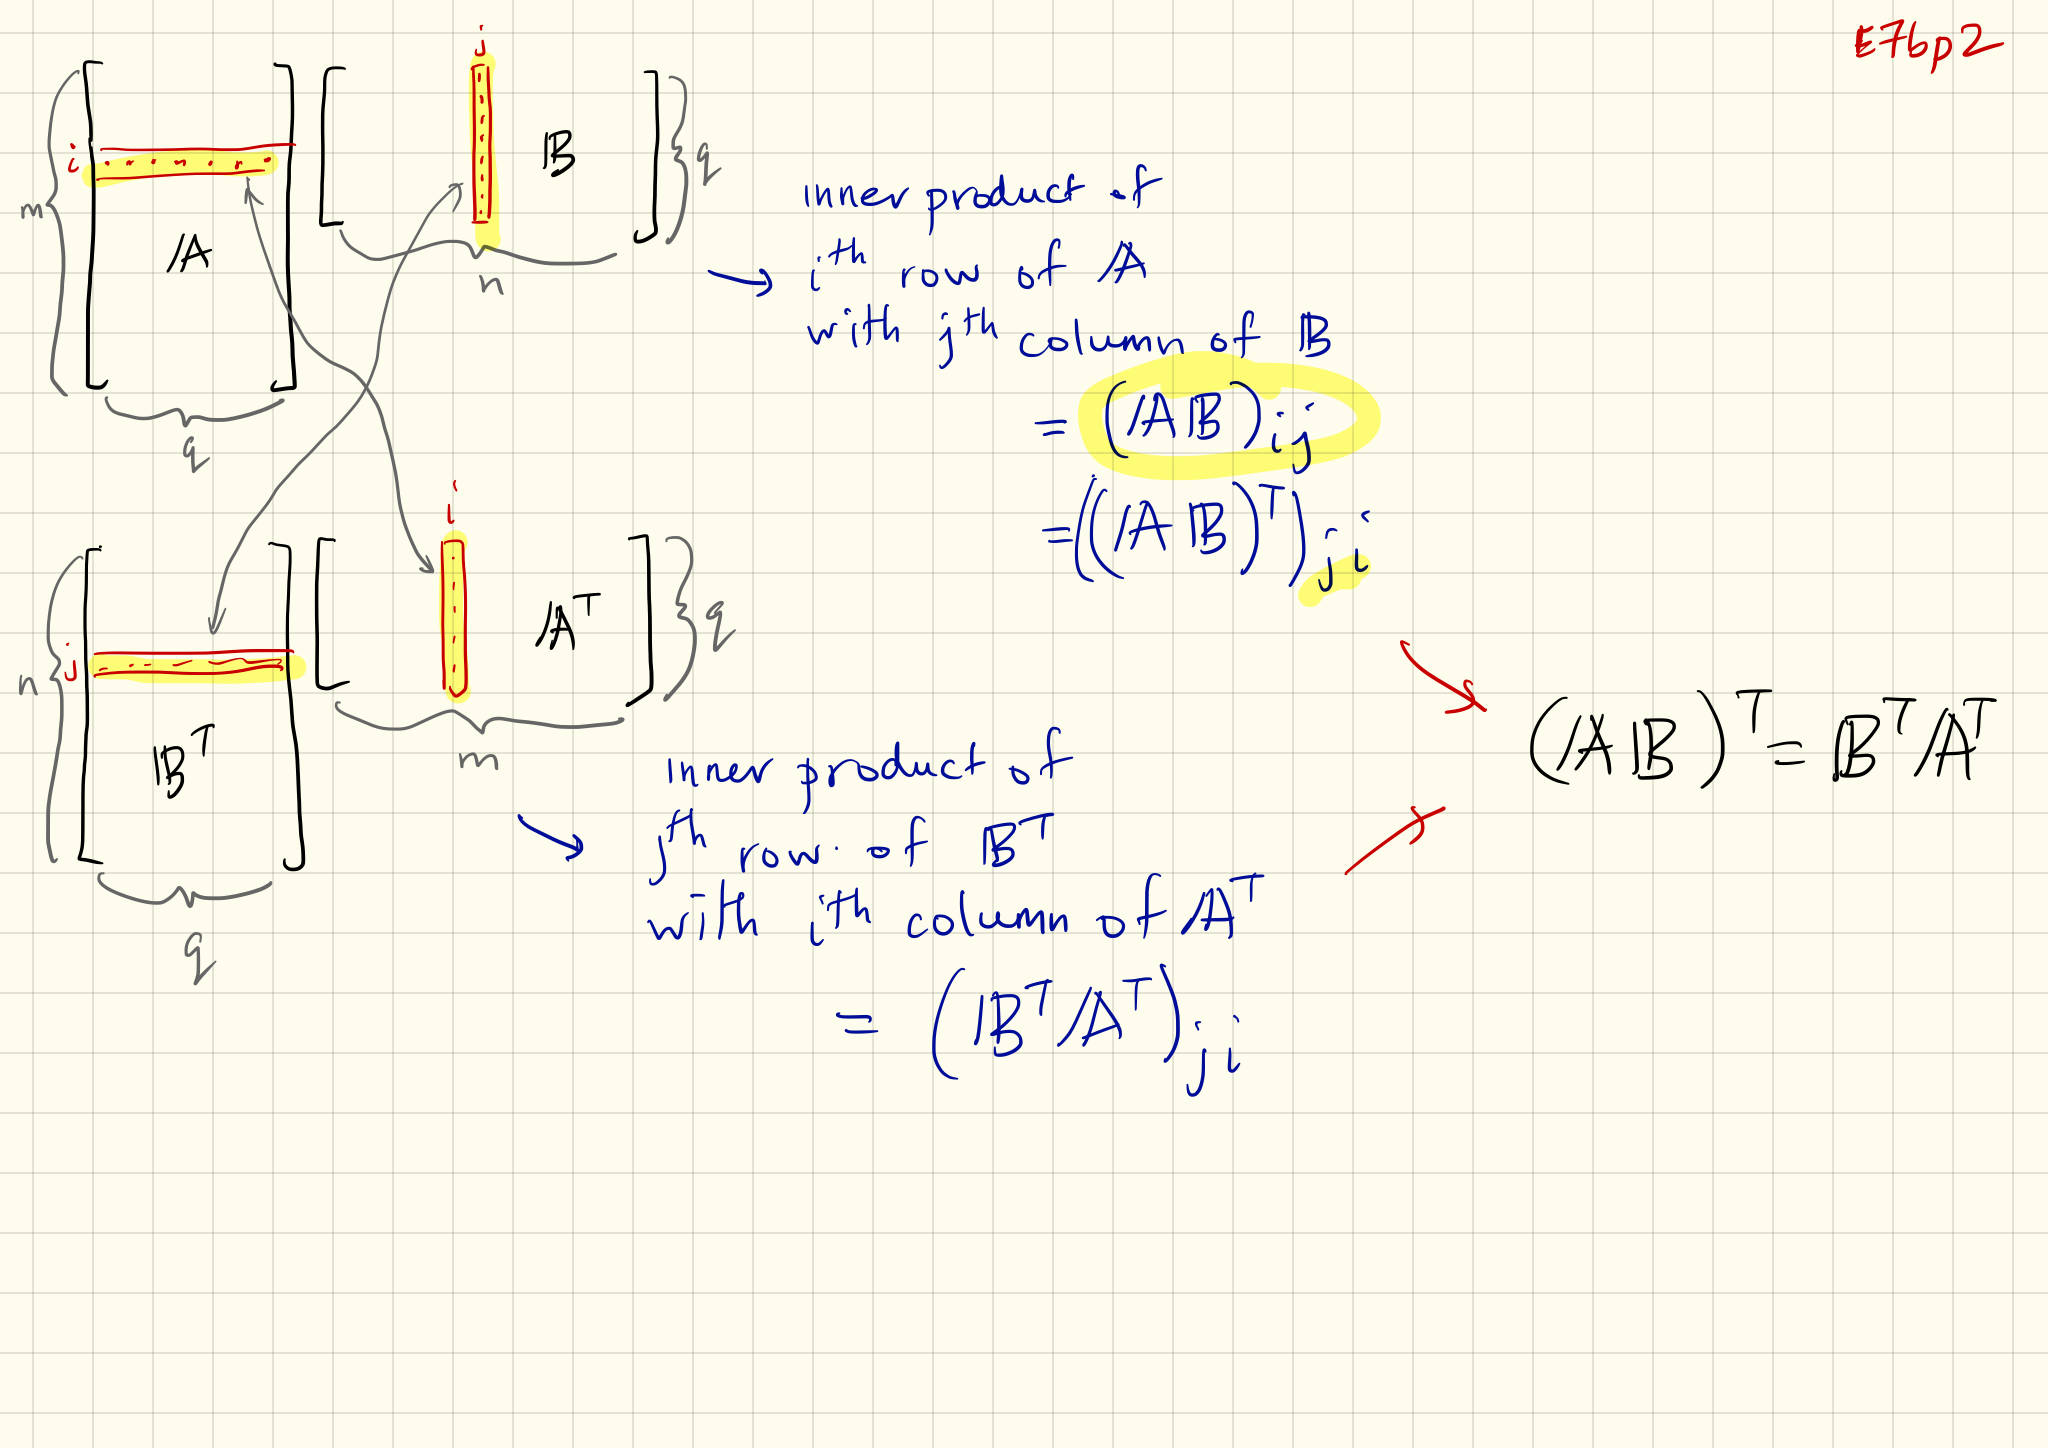 E76p2
j
i
m
𝔸
𝔹
q
n
q
inner product of
iᵗʰ row of 𝔸
with jᵗʰ column of 𝔹
= (𝔸𝔹)ij
= ((𝔸𝔹)ᵀ)ji
i
j
n
𝔹ᵀ
𝔸ᵀ
q
m
q
inner product of
jᵗʰ row of 𝔹ᵀ
with iᵗʰ column of 𝔸ᵀ
= (𝔹ᵀ𝔸ᵀ)ji
(𝔸𝔹)ᵀ = 𝔹ᵀ𝔸ᵀ